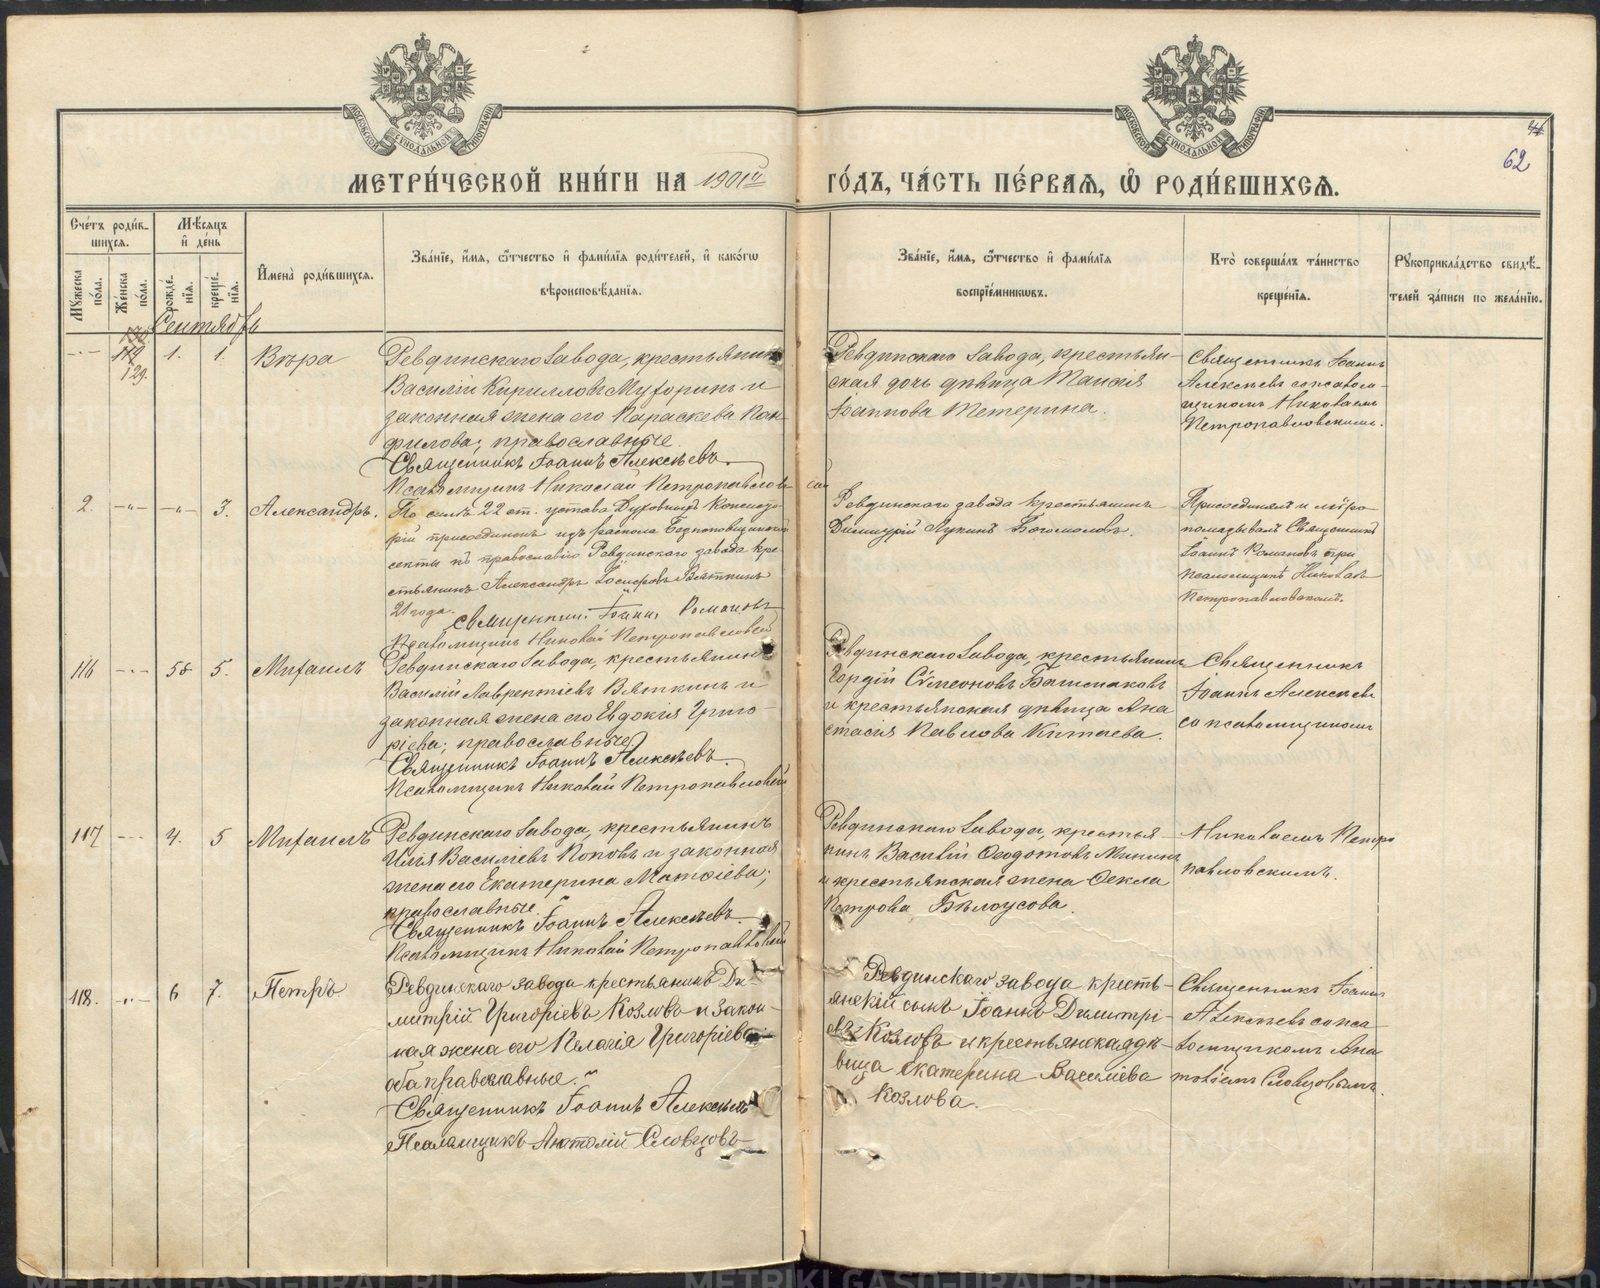 МОСКОВСКОЙ СѴНОДАЛЬНОЙ ТИПОГРАФІИ
МОСКОВСКОЙ СѴНОДАЛЬНОЙ ТИПОГРАФІИ
62
МЕТРИ́ЧЕСКОЙ КНИ́ГИ НА 1901й ГО́ДЪ, ЧА́СТЬ ПЕ́РВАЯ, Ѡ РОДИ́ВШИХСЯ.
Сче́тъ роди́в-
шихся.
Мѣ́сяцъ
и де́нь
Мꙋжеска по́ла.
Же́нска по́ла.
рожде́-
нія.
креще́-
нія.
Имена̀ роди́вшихся.
Зва́ніе, и́мя, ѻ́тчество и фами́лія роди́телей, и како́гѡ
вѣроисповѣ́данія.
Зва́ніе, и́мя, ѻ́тчество и фами́лія
воспріе́мникѡвъ.
Кто̀ соверша́лъ та́инство
креще́нія.
Рꙋкоприкла́дство свидѣ́-
телей за́писи по жела́нію.
Сентябрь
129.
1. 1. Вѣра
Ревдинскаго Завода, крестьянинъ
Василій Кирилловъ Мухоринъ и
законная жена его Параскева Пан-
филова; православные.
Священникъ Іоаннъ Алексѣевъ.
Псаломщикъ Николай Петропавловскій
Ревдинскаго Завода, крестьян-
ская дочь дѣвица Таисія
Іоаннова Тетерина.
Священникъ Іоаннъ
Алексѣевъ съ псалом-
щикомъ Николаемъ
Петропавловскимъ.
2. —"— —"— 3. Александръ.
По силѣ 22 ст. устава Духовныхъ Консисто-
рій присоединенъ изъ раскола Безпоповщинской
секты къ православію Ревдинскаго завода кре-
стьянинъ Александръ Іосифовъ Вяткинъ
21 года.
Священник. Іоанн. Романовъ
Псаломщикъ Николай Петропавловскій
Ревдинскаго завода крестьянинъ
Димитрій Лукинъ Богомоловъ.
Присоединялъ и мѵро-
помазывалъ Священникъ
Іоаннъ Романовъ при
псаломщикѣ Николаѣ
Петропавловскомъ.
116 5. Михаилъ
Ревдинскаго Завода, крестьянинъ
Василій Лаврентіевъ Вяткинъ и
законная жена его Евдокія Григо-
ріева; православные
Священникъ Іоаннъ Алексѣевъ.
Псаломщикъ Николай Петропавловскій
Ревдинскаго Завода, крестьянинъ
Гордій Сѵмеоновъ Башмаковъ
и крестьянская дѣвица Ана
стасія Павлова Китаева.
Священникъ
Іоаннъ Алексѣевъ
съ псаломщикомъ
117 4. 5 Михаилъ
Ревдинскаго Завода, крестьянинъ
Илія Василіевъ Поповъ и законная
жена его Екатерина Матѳіева;
православные.
Священникъ Іоаннъ Алексѣевъ
Псаломщикъ Николай Петропавловскій
Ревдинскаго Завода, крестья-
нинъ Василій Ѳеодотовъ Мининъ
и крестьянская жена Ѳекла
Петрова Бѣлоусова.
Николаемъ Петро
павловскимъ.
118. 6 7. Петръ
Ревдинскаго завода крестьянинъ Ди-
митрій Григоріевъ Козловъ и закон-
ная жена его Пелагія Григоріева
оба православные.
Священникъ Іоаннъ Алексѣевъ
Псаломщикъ Анатолій Словцовъ
Ревдинскаго завода кресть-
янскій сынъ Іоаннъ Димитрі-
евъ Козловъ и крестьянская дѣ-
вица Екатерина Василіева
Козлова.
Священникъ Іоаннъ
Алексѣевъ съ пса-
ломщикомъ Ана
толіемъ Словцовымъ.
METRIKI.GASO-URAL.RU